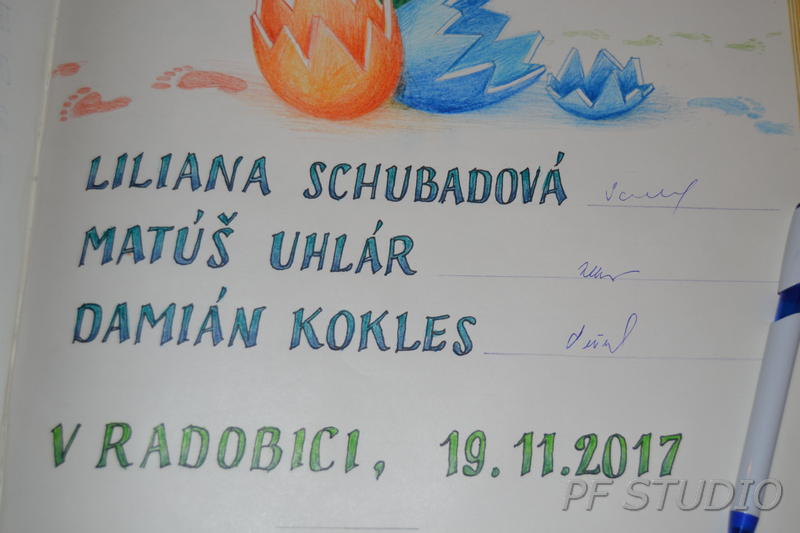 LILIANA SCHUBADOVÁ
MATÚŠ UHLÁR
DAMIÁN KOKLES
V RADOBICI, 19.11.2017
PF STUDIO